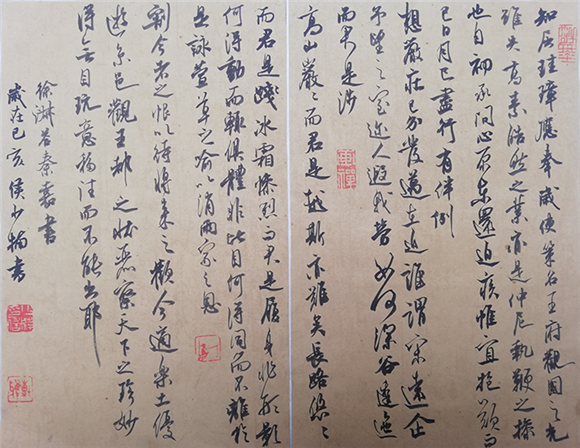 知屈珪璋應奉歲使策名王府觀國之光
雖失高素皓然之業亦是仲尼執鞭之操
也自初承问心原东還迫疾惟宜抱歎而
已日月已盡行有伴例
想嚴莊已辦發邁在近誰謂宋遠企
予望之室迩人遐我勞如何深谷逶迤
而君是涉
高山巖々而君是越斯亦難矣長路悠々
而君是踐冰霜慘烈而君是履身非形影
何得動而輒俱體非比目何得同而不離於
是詠萱草之喻以消兩家之恩
割今者之恨以待將來之歡今適樂土優
遊京邑觀王都之壯麗察天下之珍妙
得無目玩意移往而不能出耶
徐淑答秦嘉書
歲在己亥侯少書